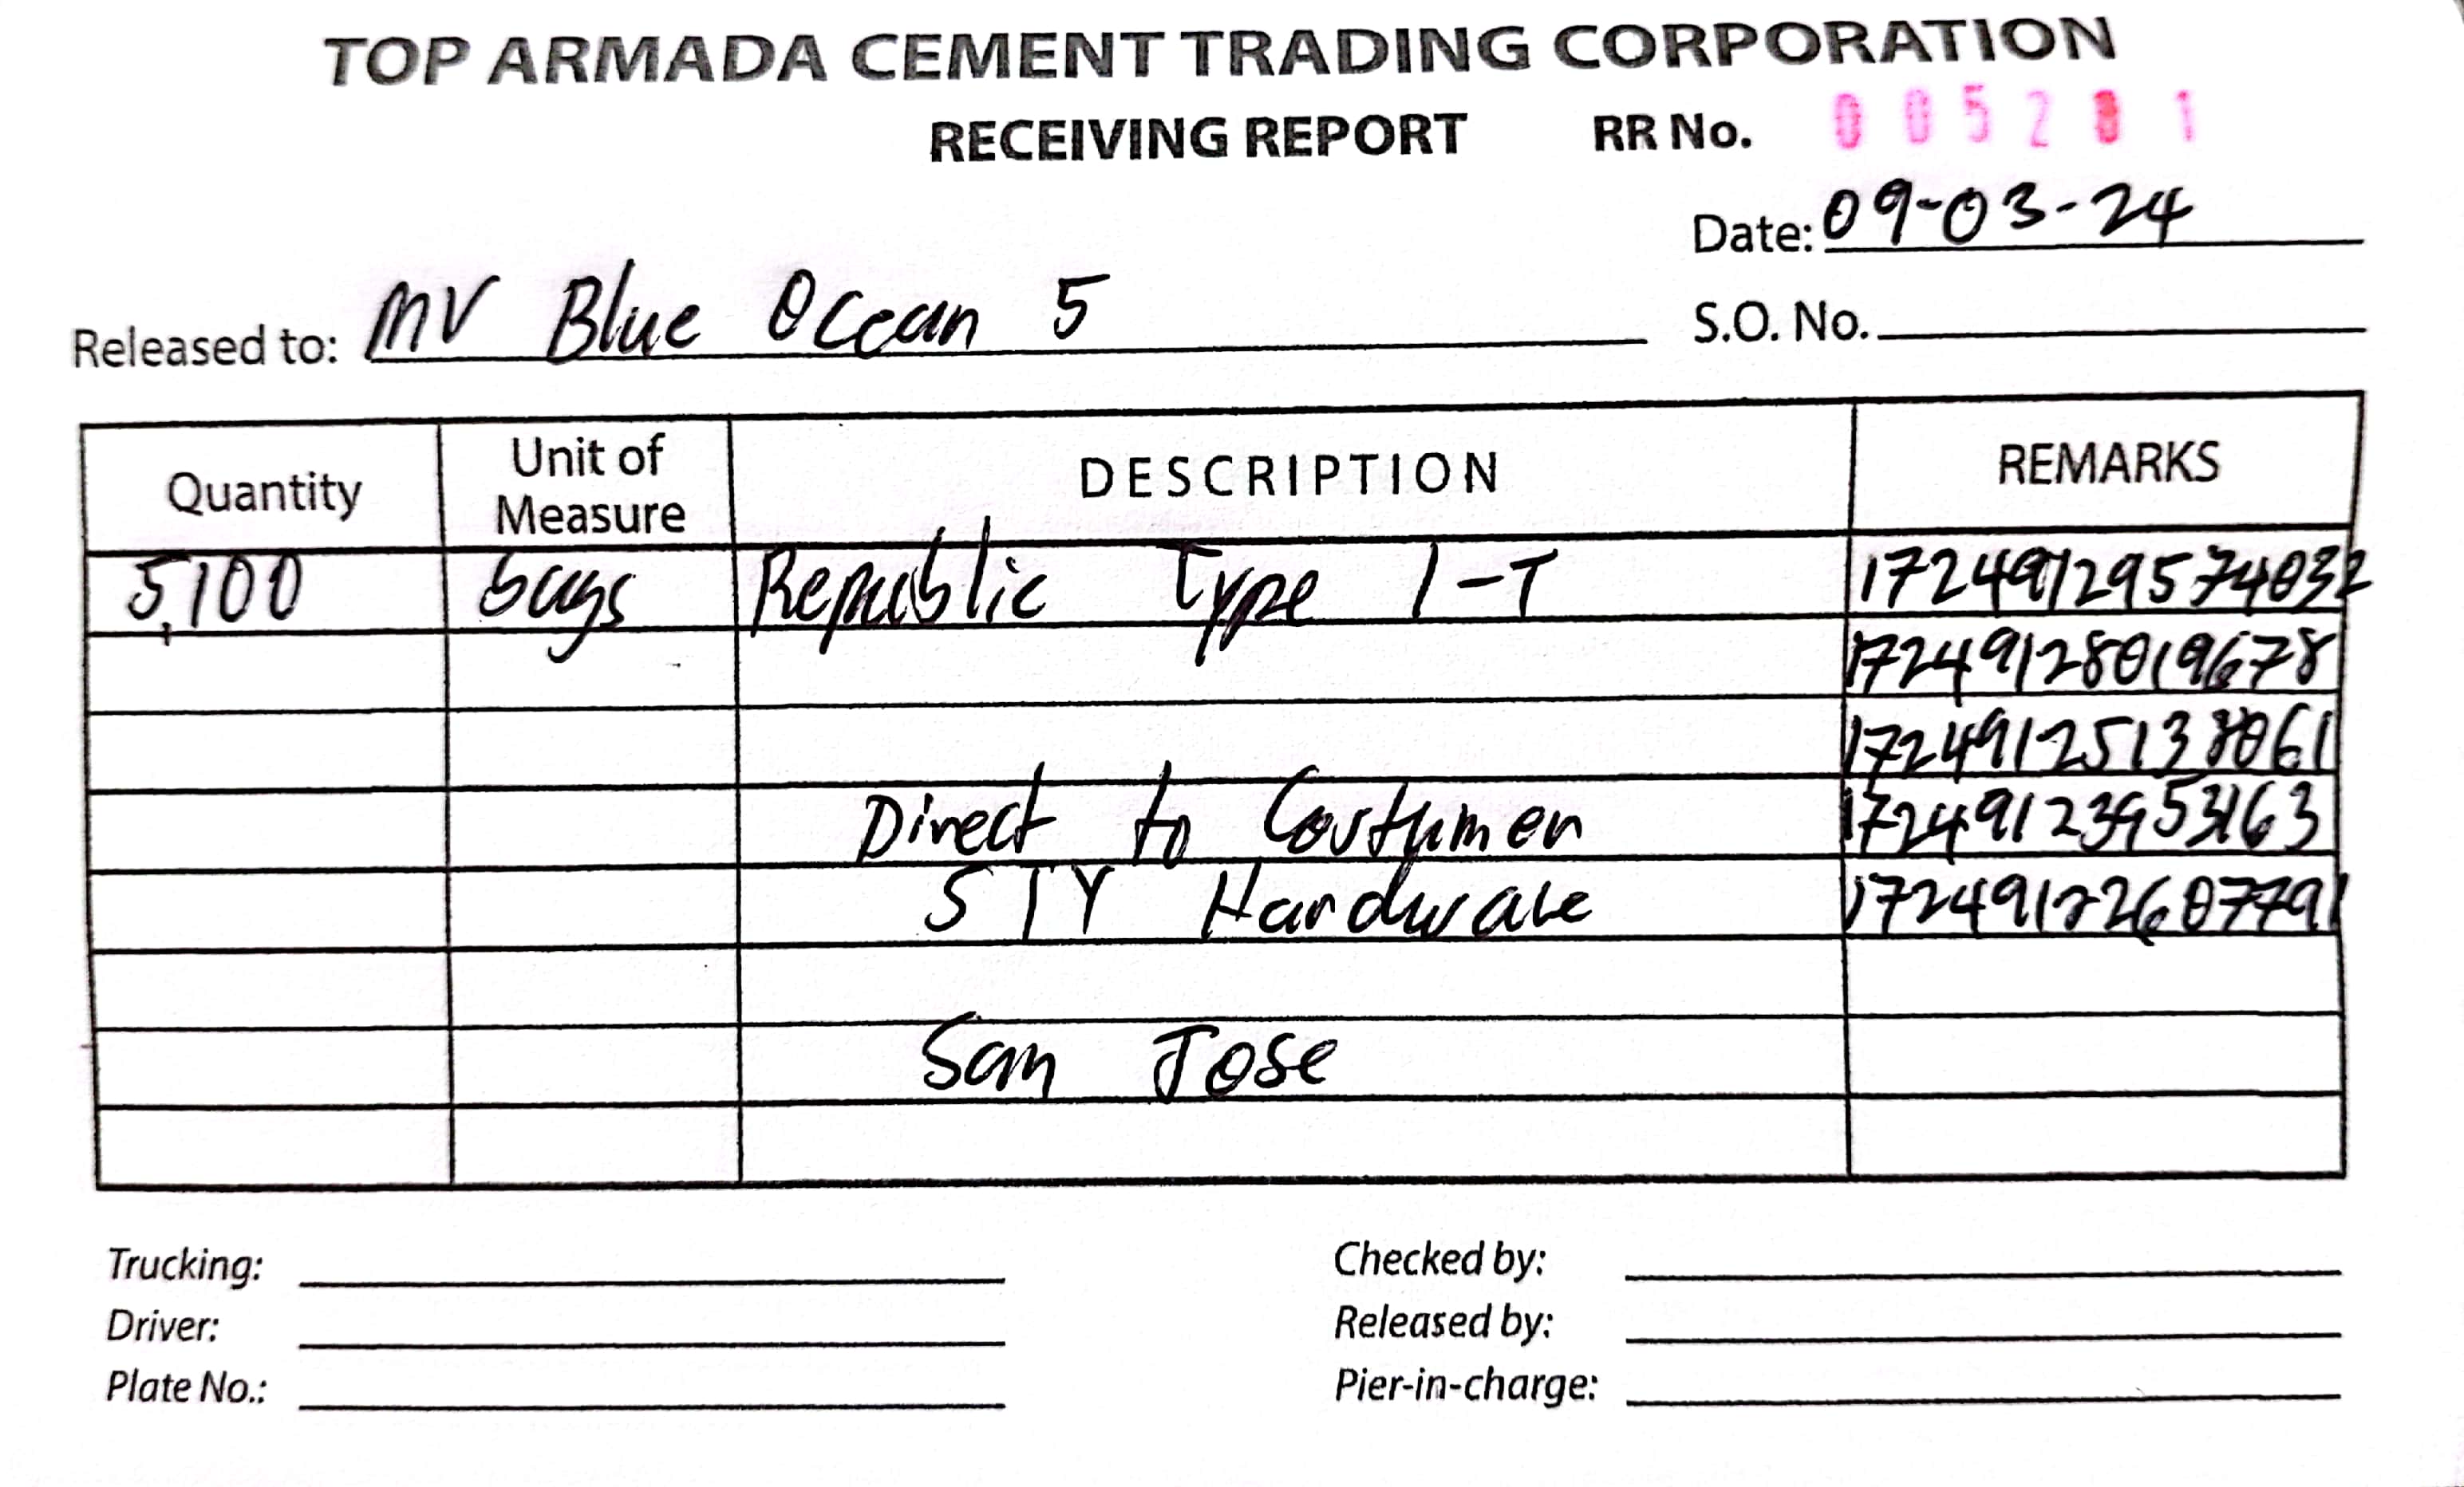 TOP ARMADA CEMENT TRADING CORPORATION
RECEIVING REPORT RR No. 005281
Date: 09-03-24
Released to: MV Blue Ocean 5 S.O. No.
Quantity Unit of Measure DESCRIPTION REMARKS
5,100 bags Republic Type 1-T 17249129574032
17249128019678
17249125138061
Direct to Costumer 
STY Hardware 17249122607791
San Jose
Trucking: Checked by:
Driver: Released by:
Plate No.: Pier-in-charge: